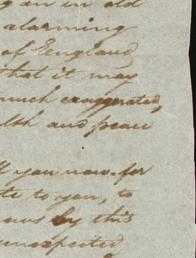 an in old
alarming
of England
that it may
much exaggerated,
and peace
you now. for
to you, to
by this
unexpected